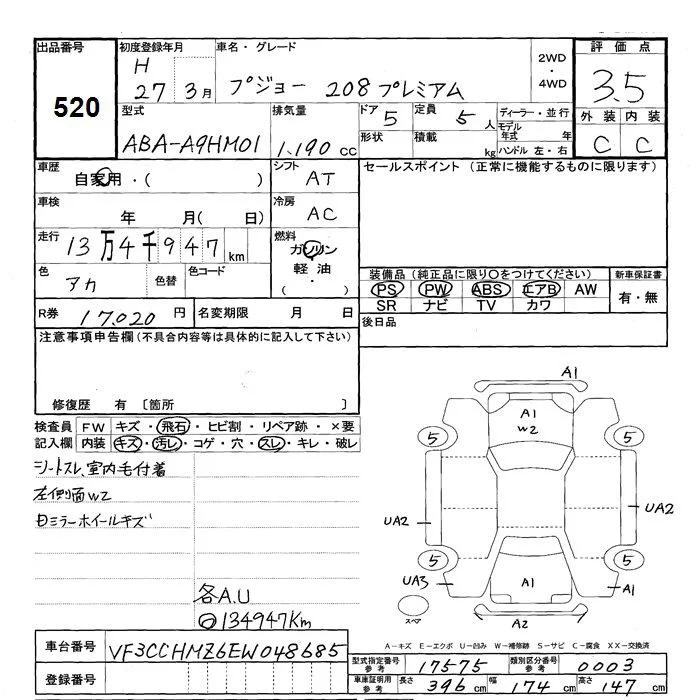 出品番号 初度登録年月 車名・グレード 評価点
520 H 27 3月 プジョー 208 プレミアム 2WD・4WD 3.5
型式 排気量 ドア 5 定員 5人 ディーラー・並行 外装 内装
ABA-A9HM01 1,190 cc 形状 積載 kg モデル年式 年 ハンドル 左・右 C C
車歴 自家用・( ) シフト AT セールスポイント (正常に機能するものに限ります)
車検 年 月( 日) 冷房 AC
走行 13万4千947 km 燃料 ガソリン・軽油 ( ・ )
色 アカ 色替 色コード
装備品 (純正品に限り○をつけてください) 新車保証書
PS PW ABS エアB AW 有・無
SR ナビ TV カワ
R券 17,020 円 名変期限 月 日 後日品
注意事項申告欄 (不具合内容等は具体的に記入して下さい)
修復歴 有 〔箇所 〕
検査員 FW キズ・飛石・ヒビ割・リペア跡・×要
記入欄 内装 キズ・汚レ・コゲ・穴・スレ・キレ・破レ
シートスレ,室内毛付着
左側面W2
ミラーホイールキズ
各A.U
134947Km
A1
A1
W2
5 5
UA2 UA2
5 5
UA3 A1 A1
スペア A2
A-キズ E-エクボ U-凹み W-補修跡 S-サビ C-腐食 XX-交換済
車台番号 VF3CCHMZ6EW048685
登録番号
型式指定番号 参考 17575 類別区分番号 参考 0003
車庫証明用 参考 長さ 396 cm 幅 174 cm 高さ 147 cm